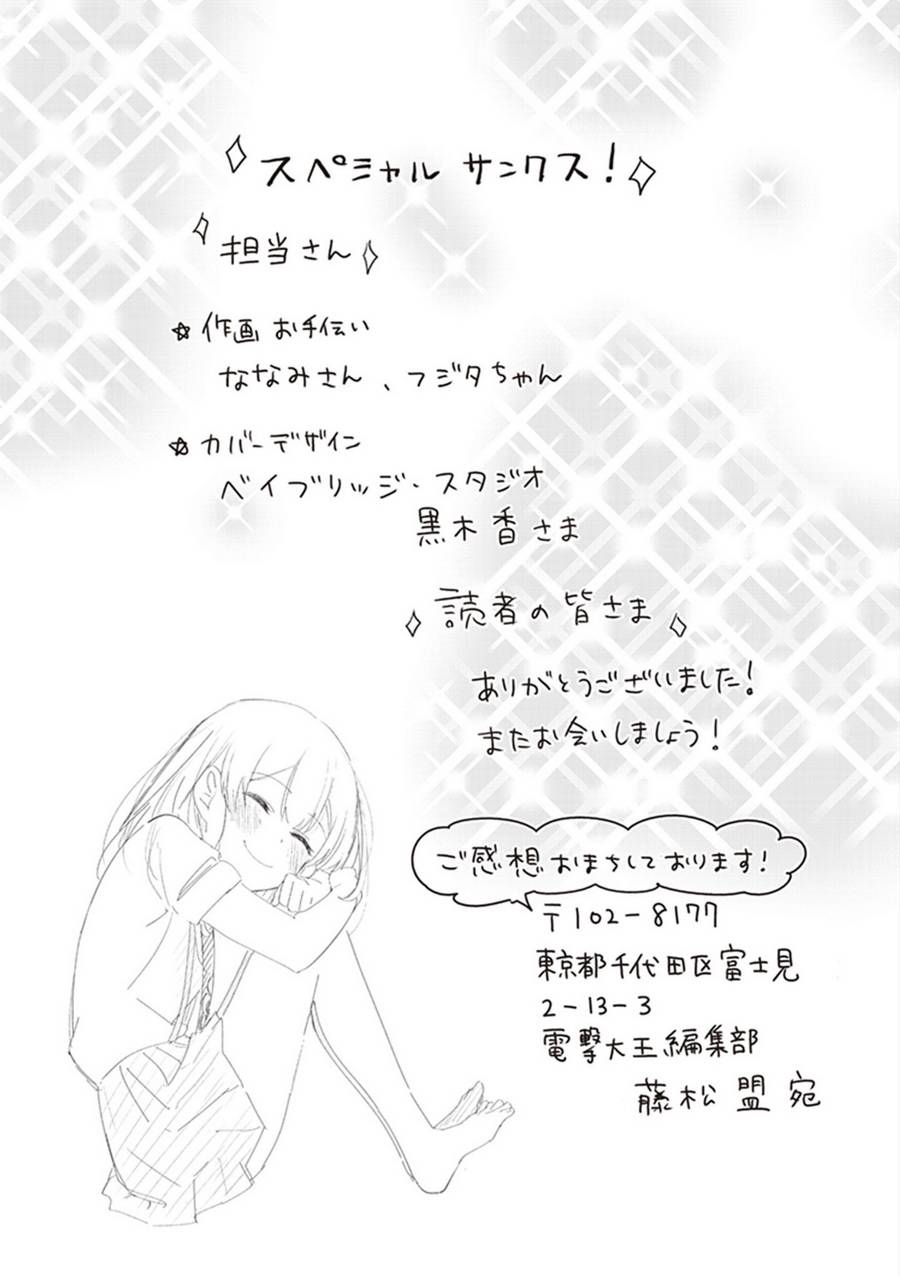 スペシャル サンクス!
担当さん
☆作画お手伝い
ななみさん、フジタちゃん
☆カバーデザイン
ベイブリッジ・スタジオ
黒木香さま
読者の皆さま
ありがとうございました!
またお会いしましょう!
ご感想おまちしております!
〒102-8177
東京都千代田区富士見
2-13-3
電撃大王編集部
藤松盟宛